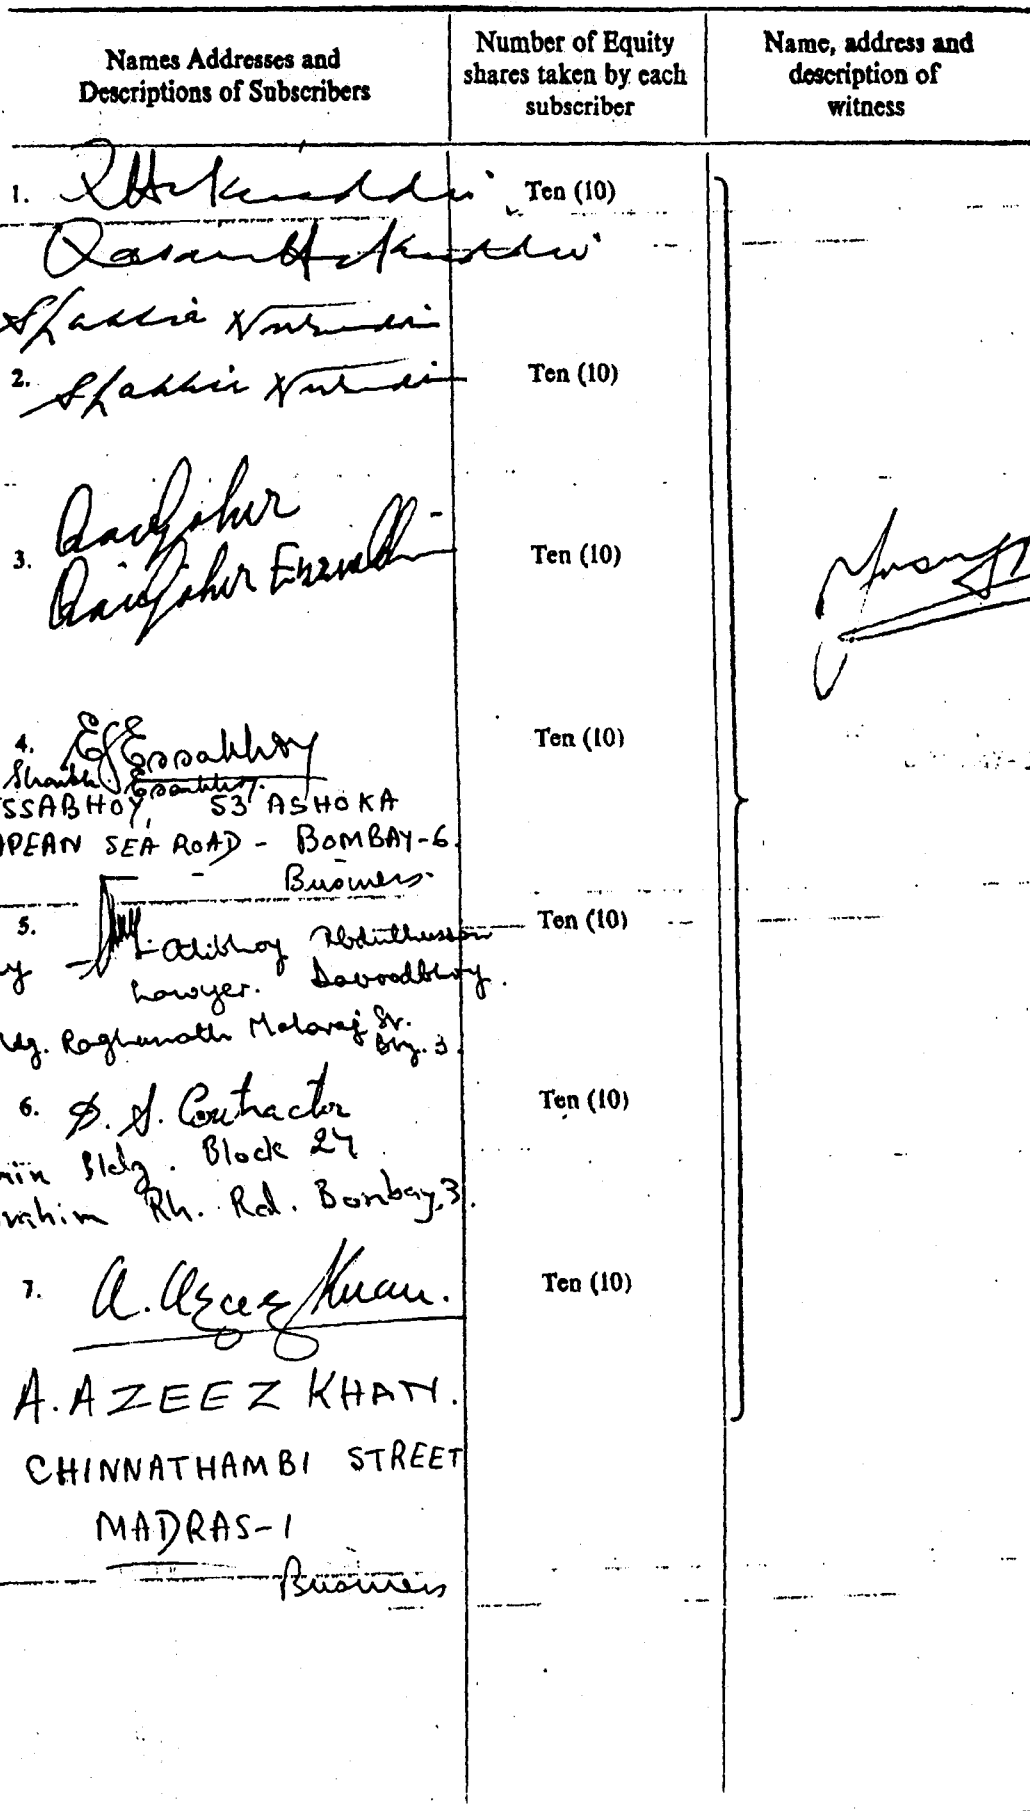 Names Addresses and
Descriptions of Subscribers
Number of Equity
shares taken by each
subscriber
Name, address and
description of
witness
1.
Ten (10)
Shabbir Nuruddin
2. Shabbir Nuruddin
Ten (10)
Qaidjoher
3. Qaidjoher Ezzuddin
Ten (10)
4. Essabhoy
Ten (10)
Essabhoy
SSABHOY, 53 ASHOKA
APEAN SEA ROAD - BOMBAY-6.
Business
5. Alibhoy Abdulhussain
Ten (10)
Lawyer. Davoodbhoy.
Raghunath Maharaj St.
Bby. 3.
6. S. Contractor
Ten (10)
Bldg. Block 27
rahim Rh. Rd. Bombay, 3.
7. A. Azeez Khan.
Ten (10)
A. AZEEZ KHAN.
CHINNATHAMBI STREET
MADRAS-1
Business